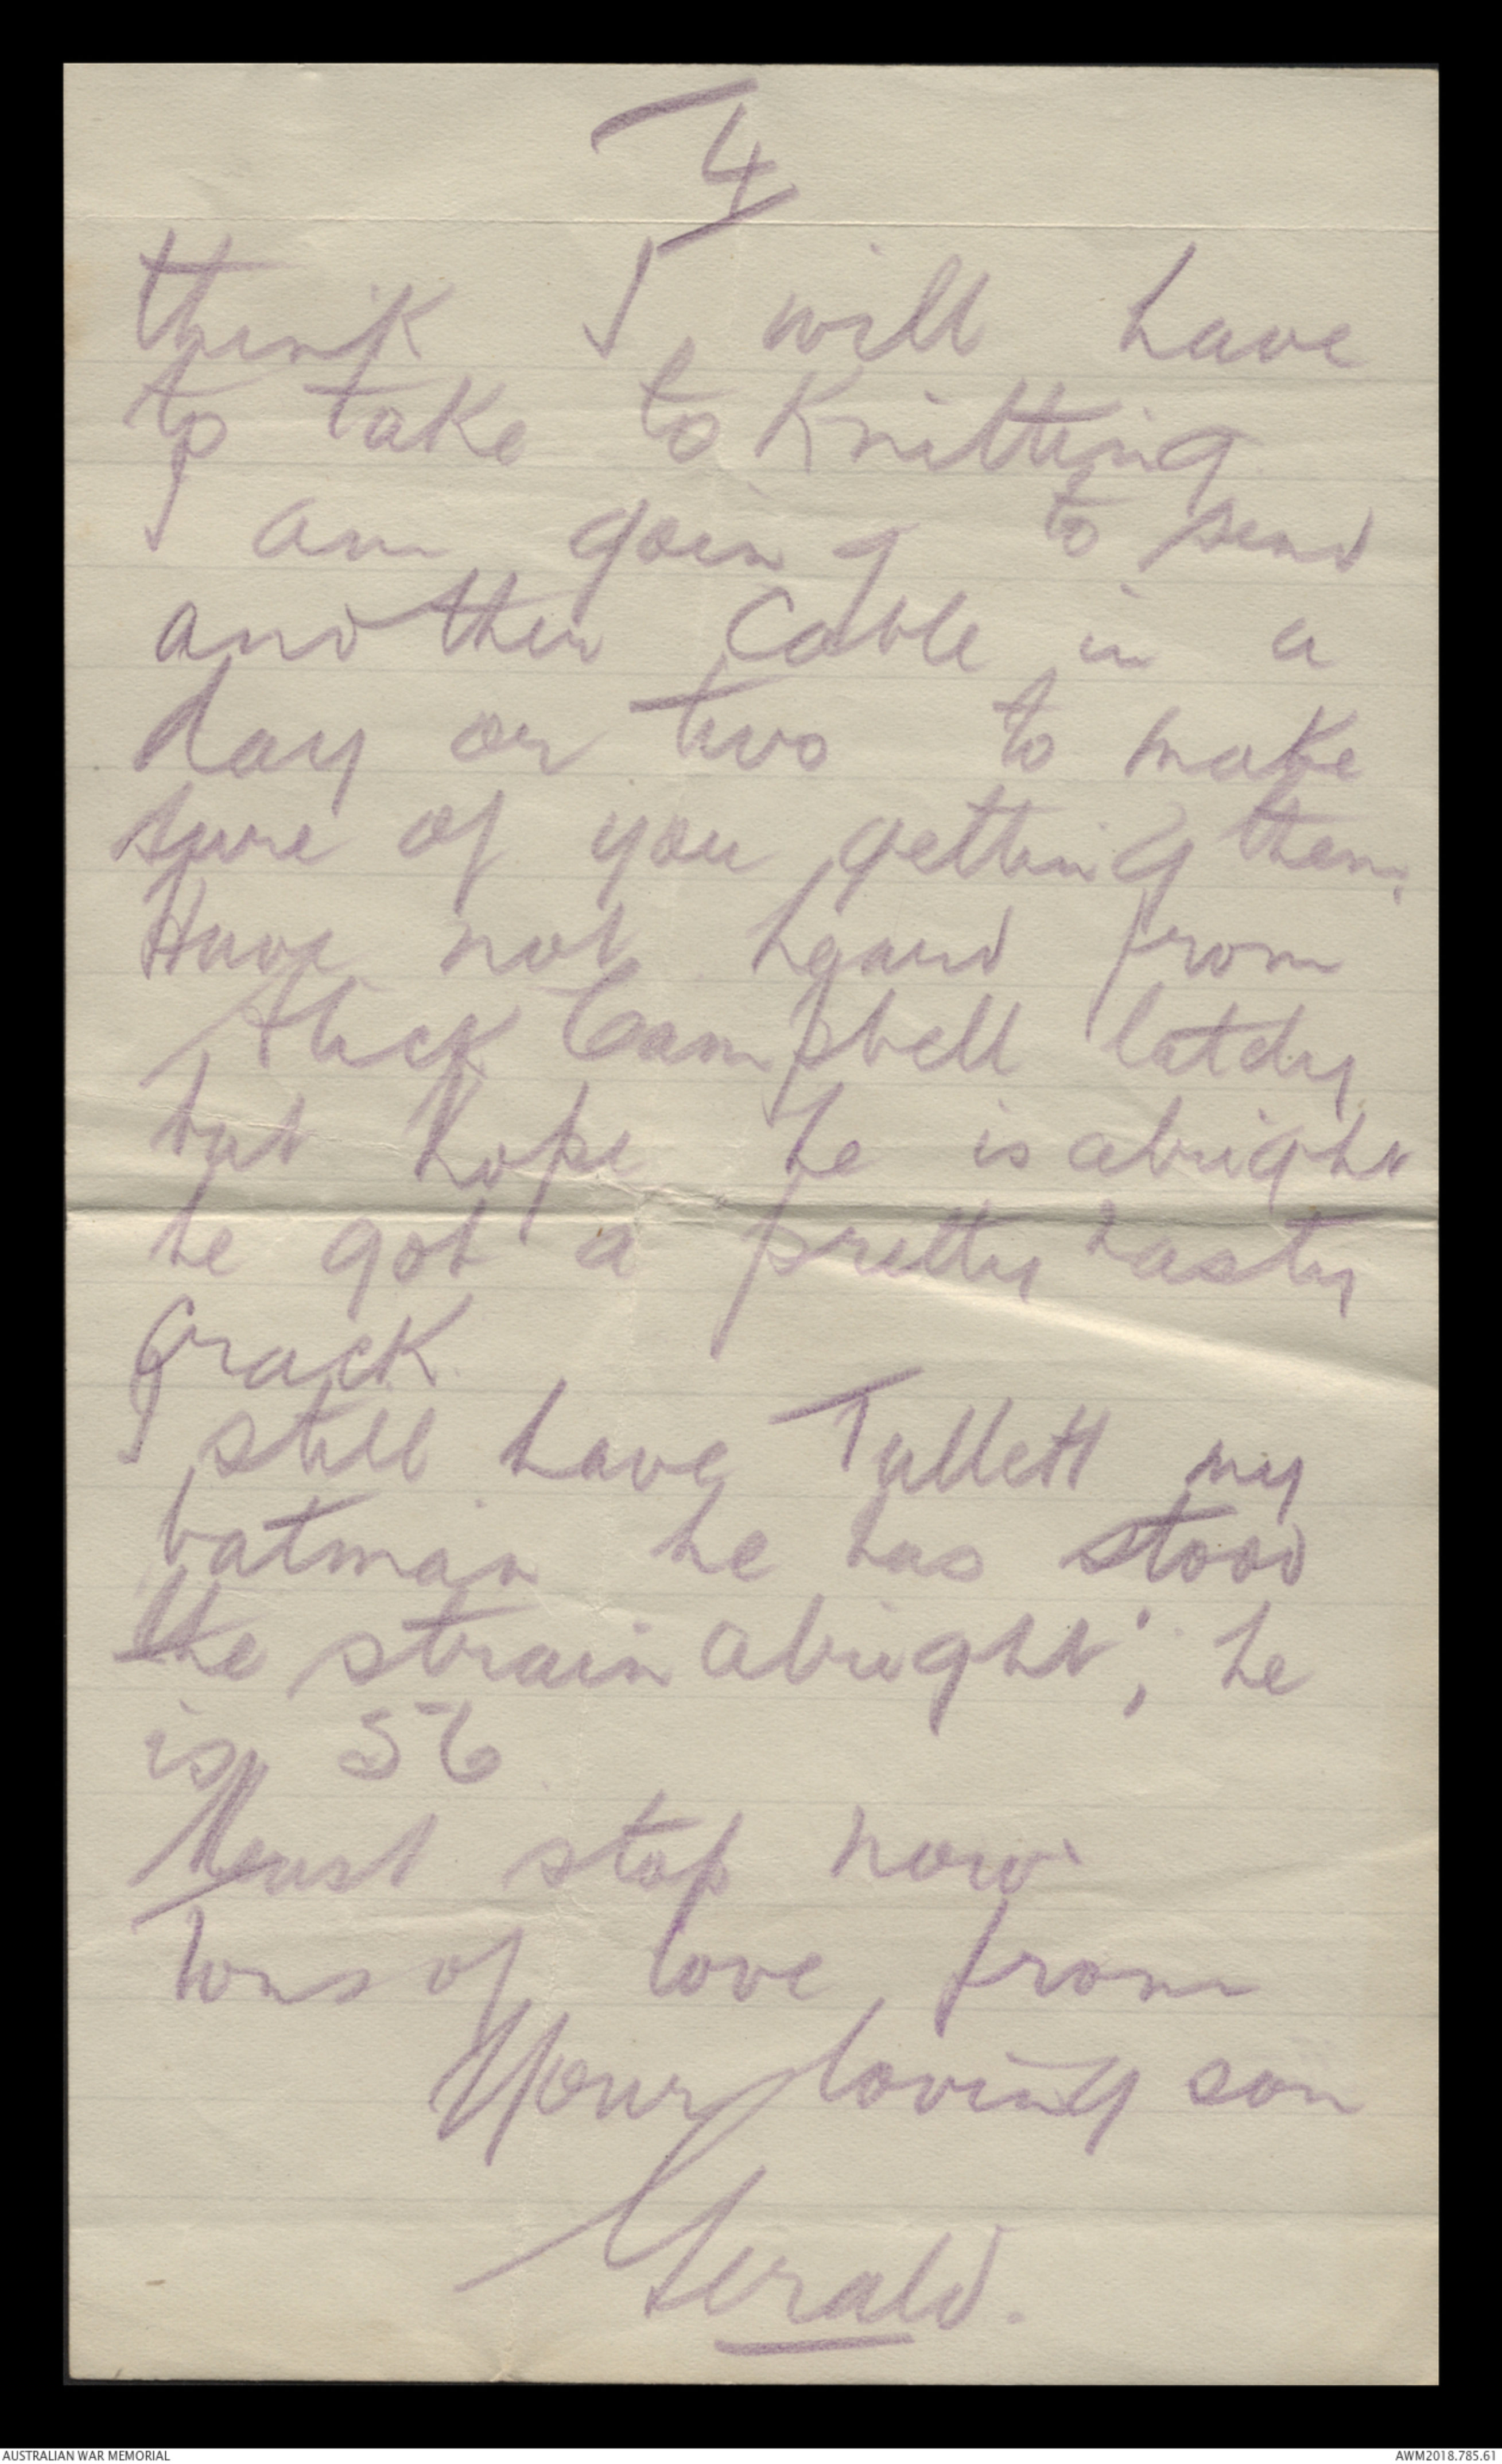 4
think I will have
to take to Knitting
I am going to send
another Cable in a
day or two to make
sure of you getting them.
Have not heard from
Alick Campbell lately
but hope he is alright
he got a pretty nasty
crack.
I still have Tullett my
batman he has stood
the strain alright; he
is 56
Must stop now
Tons of love from
Your loving son
Gerald.
AUSTRALIAN WAR MEMORIAL
AWM2018.785.61